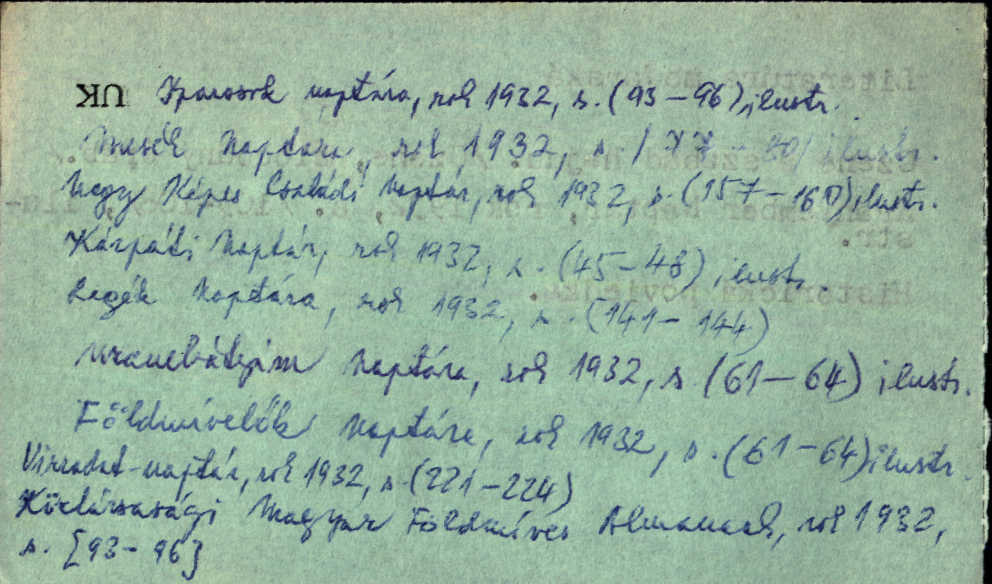 UK Iparosok naptára, rok 1932, s. (93-96), ilustr.
Mesék Naptára, rok 1932, s. (77-80) ilustr.
Nagy Képes Családi Naptár, rok 1932, s. (157-160) ilustr.
Kárpáti Naptár, rok 1932, s. (45-48) ilustr.
Regék Naptára, rok 1932, s. (141-144)
Naptára, rok 1932, s. (61-64) ilustr.
Földmívelők Naptára, rok 1932, s. (61-64) ilustr.
Virradat-naptár, rok 1932, s. (221-224)
Köztársasági Magyar Földmíves Almanach, rok 1932,
s. [93-96]